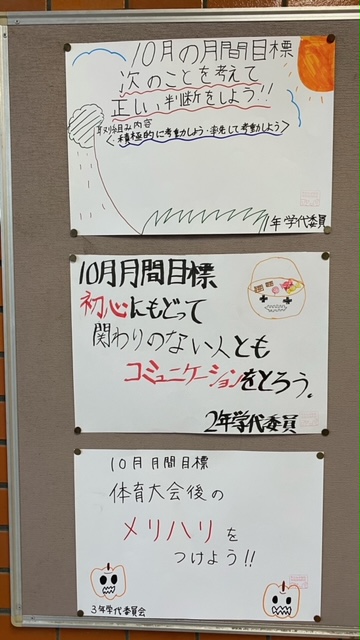 10月の月間目標
次のことを考えて
正しい判断をしよう!!
取り組み内容
＜・積極的に考動しよう・率先して考動しよう＞
1年学代委員
10月月間目標
初心にもどって
関わりのない人とも
コミュニケーションをとろう。
2年学代委員
10月月間目標
体育大会後の
メリハリを
つけよう!!
3年学代委員会